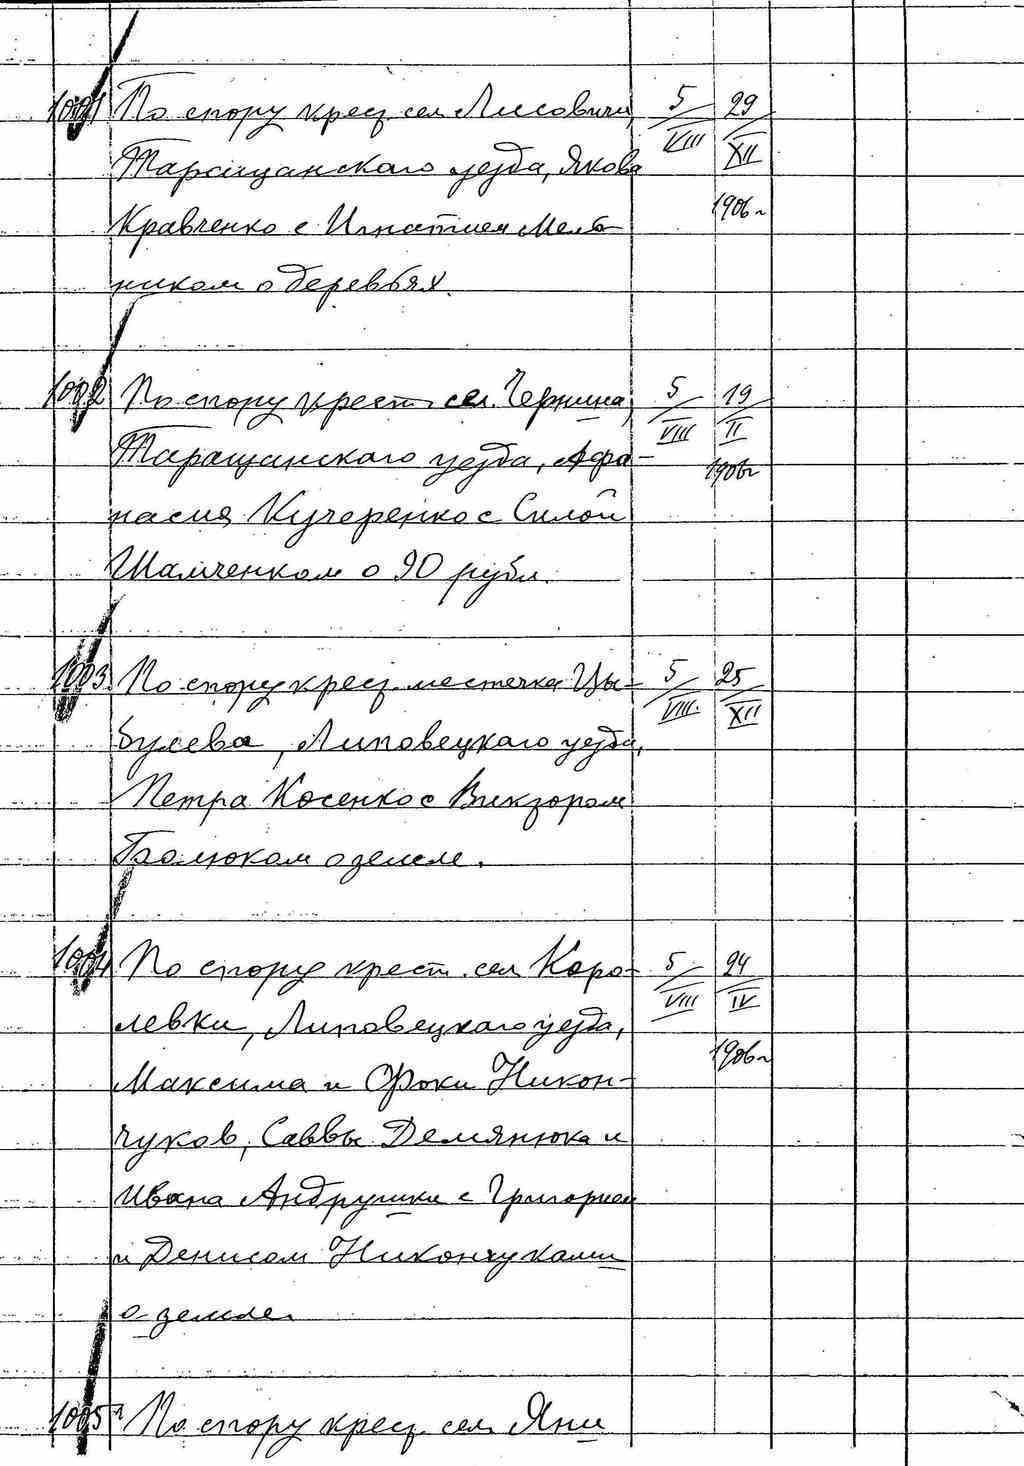 1001 По спору крест. сел. Лисовичи, 5/VIII 29/XII
Таращанского уезда, Якова
Кравченко с Игнатием Мель- 1906 г
ником о деревьях.
1002 По спору крест. сел. Чернина, 5/VIII 19/II
Таращанского уезда, Афа- 1906 г
насия Кучеренко с Силой
Шамченком о 90 рубл.
1003. По спору крест. местечка Цы- 5/VIII. 25/XII
булева, Липовецкаго уезда,
Петра Косенко с Виктором
о земле.
1004 По спору крест. сел. Коро- 5/VIII 24/IV
левки, Липовецкаго уезда, 1906 г
Максима и Фоки Никон-
чуков, Саввы Демянюка и
Ивана Андрушки с Григорием
и Денисом Никончуками
о земле.
1005 По спору крест. сел. Яни